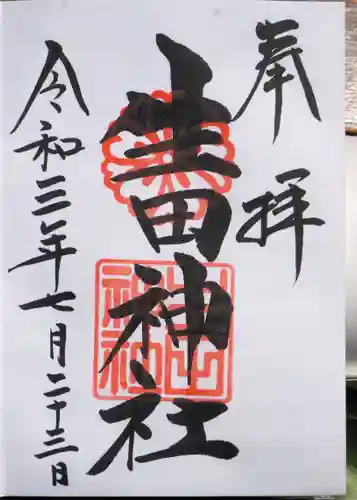 奉拝
生田神社
令和三年七月二十三日